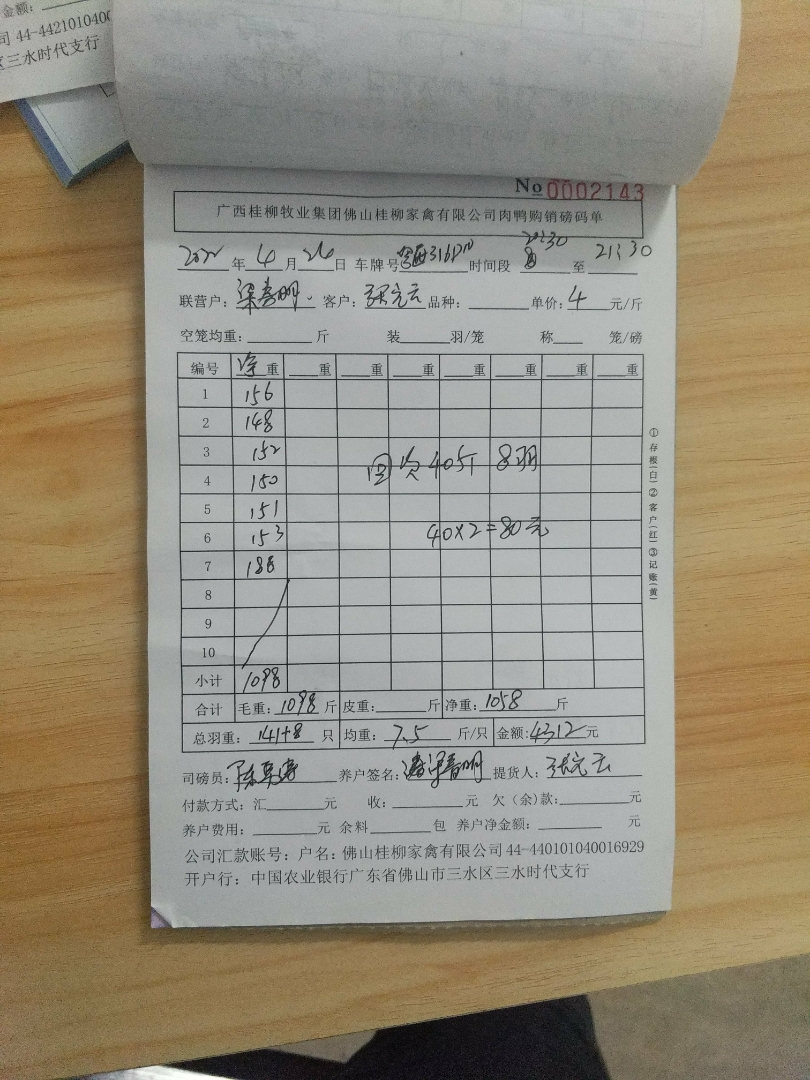 金额：
司 44-4421010400
区三水时代支行
No 0002143
广西桂柳牧业集团佛山桂柳家禽有限公司肉鸭购销磅码单
2022 年 4 月 26 日 车牌号 时间段 20:30 至 21:30
联营户： 客户：张元云 品种： 单价：4 元/斤
空笼均重： 斤 装 羽/笼 称 笼/磅
编号 净重 重 重 重 重 重 重 重
1 156
2 148
3 152
4 150
5 151
6 153
7 188
8
9
10
小计 1098
回次 40斤 8羽
40×2=80元
合计 毛重：1098 斤 皮重： 斤 净重：1058 斤
总羽重：141+8 只 均重：7.5 斤/只 金额：4312元
司磅员： 养户签名： 提货人：张元云
付款方式：汇 元 收： 元 欠（余）款： 元
养户费用： 元 余料 包 养户净金额： 元
公司汇款账号：户名：佛山桂柳家禽有限公司 44-440101040016929
开户行：中国农业银行广东省佛山市三水区三水时代支行
①存根(白)②客户(红)③记账(黄)